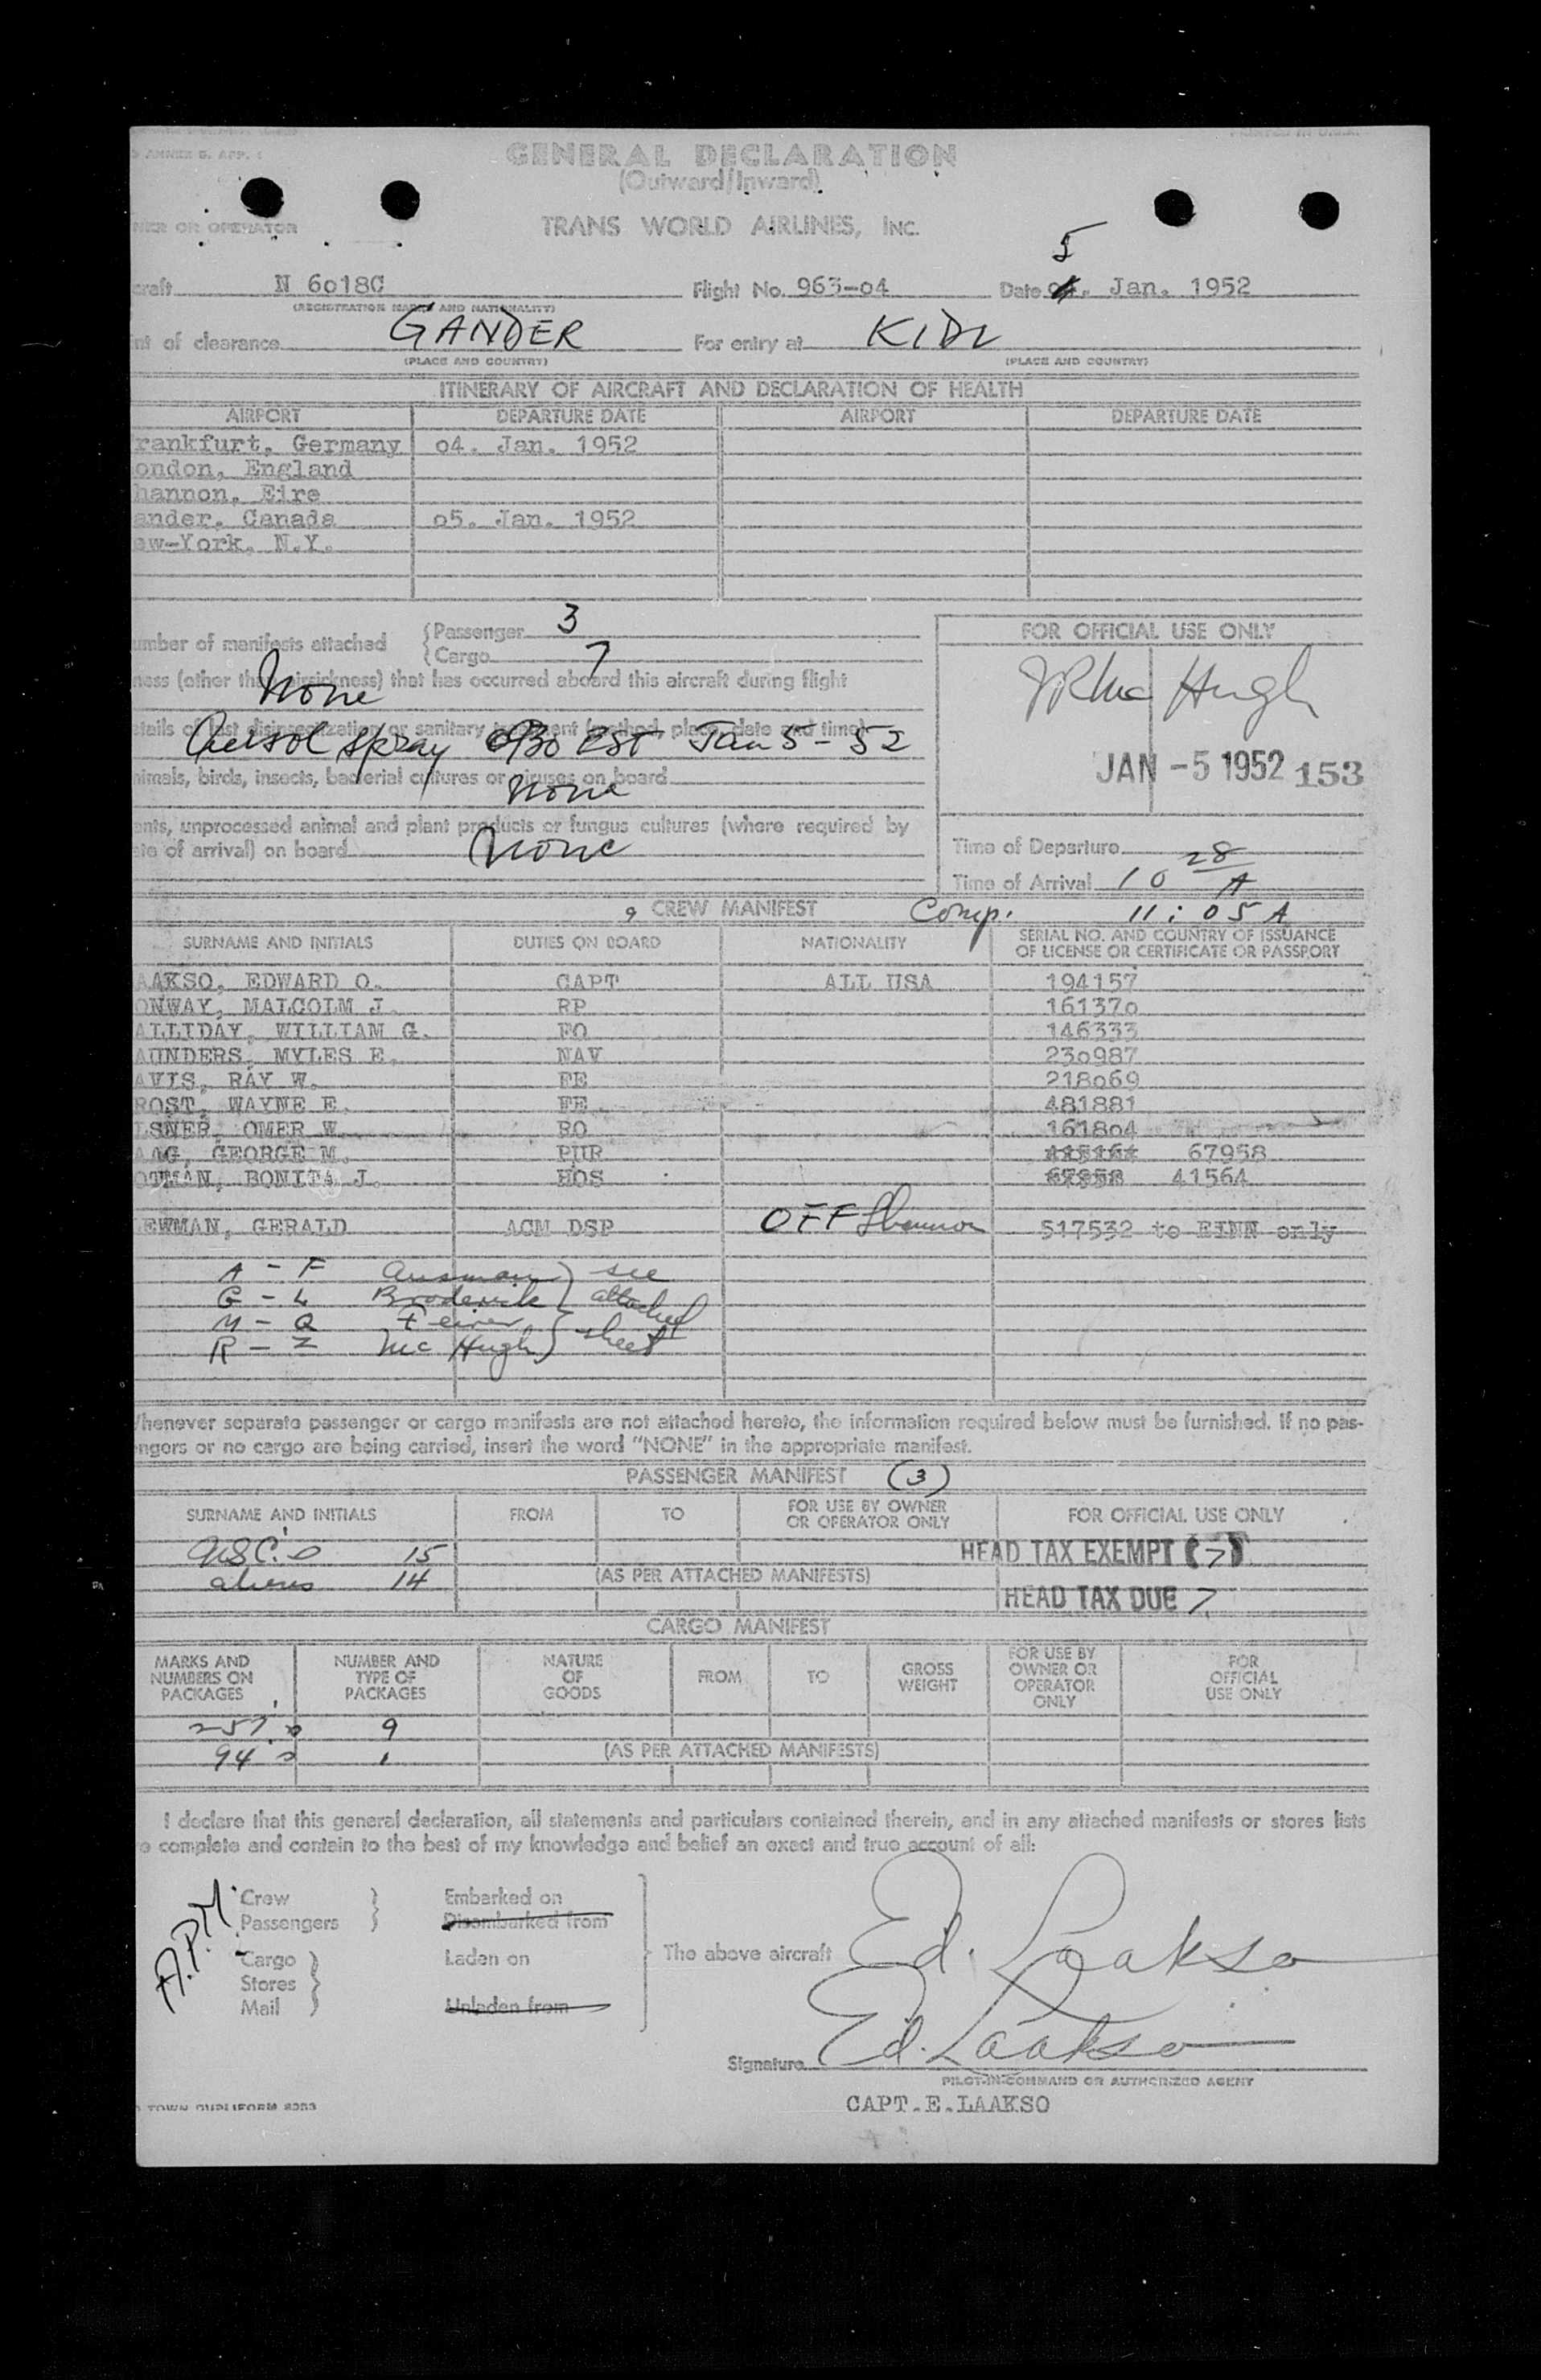 ANNEX 5. APP. 1
GENERAL DECLARATION
(Outward/Inward)
NER OR OPERATOR
TRANS WORLD AIRLINES, INC.
5
craft N 6018C Flight No. 963-04 Date 04. Jan. 1952
(REGISTRATION MARKS AND NATIONALITY)
nt of clearance GANDER For entry at KIDL
(PLACE AND COUNTRY) (PLACE AND COUNTRY)
ITINERARY OF AIRCRAFT AND DECLARATION OF HEALTH
AIRPORT DEPARTURE DATE AIRPORT DEPARTURE DATE
rankfurt, Germany o4. Jan. 1952
ondon, England
hannon, Eire
ander, Canada o5. Jan. 1952
ew-York, N.Y.
umber of manifests attached
Passenger 3
Cargo 7
FOR OFFICIAL USE ONLY
ness (other than airsickness) that has occurred aboard this aircraft during flight
None
etails of last disinsectization or sanitary treatment (method, place, date and time)
spray EST Jan 5-52
nimals, birds, insects, bacterial cultures or viruses on board
None
JAN -5 1952 153
ants, unprocessed animal and plant products or fungus cultures (where required by
ate of arrival) on board None
Time of Departure
Time of Arrival 10 28 A
CREW MANIFEST Comp. 11:05 A
SURNAME AND INITIALS DUTIES ON BOARD NATIONALITY SERIAL NO. AND COUNTRY OF ISSUANCE
OF LICENSE OR CERTIFICATE OR PASSPORT
AAKSO, EDWARD O. CAPT ALL USA 194157
ONWAY, MALCOLM J. RP 16137o
ALLIDAY, WILLIAM G. FO 146333
AUNDERS, MYLES E. NAV 23o987
AVIS, RAY W. FE 218o69
ROST, WAYNE E. FE 481881
LSNER, OMER W. RO 1618o4
AAG, GEORGE M. PUR 67958
OTMAN, BONITA J. HOS 67958 41564
EWMAN, GERALD ACM DSP OFF Shannon 517532 to EINN only
A - F Ausman see
G - L Broderick attached
M - Q Feiner sheet
R - Z McHugh
Whenever separate passenger or cargo manifests are not attached hereto, the information required below must be furnished. If no pas-
ngers or no cargo are being carried, insert the word "NONE" in the appropriate manifest.
PASSENGER MANIFEST (3)
SURNAME AND INITIALS FROM TO FOR USE BY OWNER
OR OPERATOR ONLY FOR OFFICIAL USE ONLY
USC. 15 HEAD TAX EXEMPT (7)
aliens 14 (AS PER ATTACHED MANIFESTS)
HEAD TAX DUE 7
CARGO MANIFEST
MARKS AND
NUMBERS ON
PACKAGES
NUMBER AND
TYPE OF
PACKAGES
NATURE
OF
GOODS
FROM
TO
GROSS
WEIGHT
FOR USE BY
OWNER OR
OPERATOR
ONLY
FOR
OFFICIAL
USE ONLY
9
94 1 (AS PER ATTACHED MANIFESTS)
I declare that this general declaration, all statements and particulars contained therein, and in any attached manifests or stores lists
e complete and contain to the best of my knowledge and belief an exact and true account of all:
A.P.M.
Crew
Passengers
Embarked on
Disembarked from
Cargo
Stores
Mail
Laden on
Unladen from
The above aircraft Ed. Laakso
Signature Ed. Laakso
PILOT-IN-COMMAND OR AUTHORIZED AGENT
CAPT.E.LAAKSO